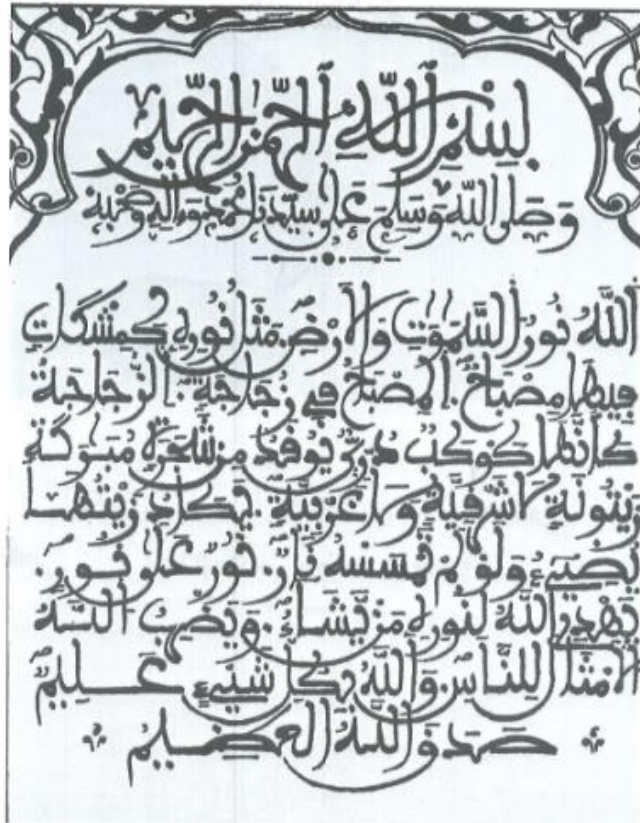 بِسْمِ اللَّهِ الرَّحْمَٰنِ الرَّحِيمِ
وَصَلَّى اللَّهُ وَسَلَّمَ عَلَى سَيِّدِنَا مُحَمَّدٍ وَءَالِهِ وَصَحْبِهِ
اَللَّهُ نُورُ السَّمَٰوَٰتِ وَالَارْضِ مَثَلُ نُورِهِ كَمِشْكَاةٍ
فِيهَا مِصْبَاحٌ. اِلْمِصْبَاحُ فِي زُجَاجَةٍ. اِلزُّجَاجَةُ
كَأَنَّهَا كَوْكَبٌ دُرِّيٌّ يُوقَدُ مِن شَجَرَةٍ مُبَٰرَكَةٍ
زَيْتُونَةٍ لَا شَرْقِيَّةٍ وَلَا غَرْبِيَّةٍ. يَكَادُ زَيْتُهَا
يُضِيءُ وَلَوْ لَمْ تَمْسَسْهُ نَارٌ. نُورٌ عَلَى نُورٍ.
يَهْدِي اللَّهُ لِنُورِهِ مَنْ يَّشَاءُ. وَيَضْرِبُ اللَّهُ
الَامْثَالَ لِلنَّاسِ. وَاللَّهُ بِكُلِّ شَيْءٍ عَلِيمٌ
صَدَقَ اللَّهُ الْعَظِيمُ